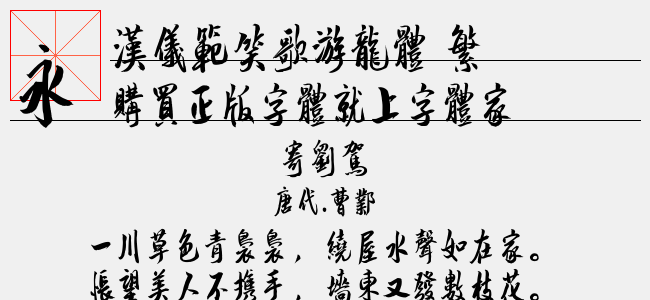 永
漢儀範笑歌游龍體 繁
購買正版字體就上字體家
寄劉駕
唐代.曹鄴
一川草色青裊裊，繞屋水聲如在家。
悵望美人不携手，墻東又發數枝花。